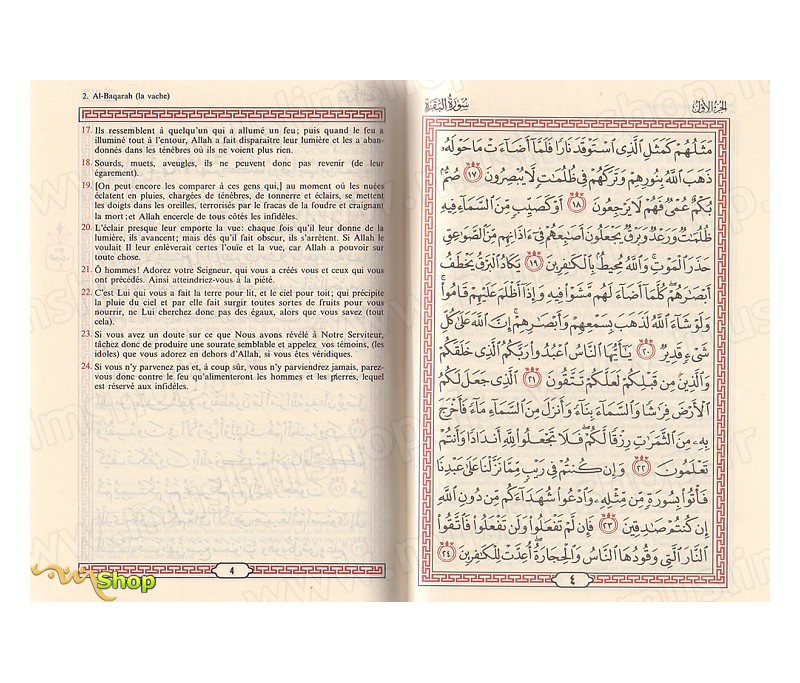 2. Al-Baqarah (la vache)
17. Ils ressemblent à quelqu'un qui a allumé un feu; puis quand le feu a
illuminé tout à l'entour, Allah a fait disparaître leur lumière et les a aban-
donnés dans les ténèbres où ils ne voient plus rien.
18. Sourds, muets, aveugles, ils ne peuvent donc pas revenir (de leur
égarement).
19. [On peut encore les comparer à ces gens qui,] au moment où les nuées
éclatent en pluies, chargées de ténèbres, de tonnerre et éclairs, se mettent
les doigts dans les oreilles, terrorisés par le fracas de la foudre et craignant
la mort; et Allah encercle de tous côtés les infidèles.
20. L'éclair presque leur emporte la vue: chaque fois qu'il leur donne de la
lumière, ils avancent; mais dès qu'il fait obscur, ils s'arrêtent. Si Allah le
voulait Il leur enlèverait certes l'ouïe et la vue, car Allah a pouvoir sur
toute chose.
21. Ô hommes! Adorez votre Seigneur, qui vous a créés vous et ceux qui vous
ont précédés. Ainsi atteindriez-vous à la piété.
22. C'est Lui qui vous a fait la terre pour lit, et le ciel pour toit; qui précipite
la pluie du ciel et par elle fait surgir toutes sortes de fruits pour vous
nourrir, ne Lui cherchez donc pas des égaux, alors que vous savez (tout
cela).
23. Si vous avez un doute sur ce que Nous avons révélé à Notre Serviteur,
tâchez donc de produire une sourate semblable et appelez vos témoins, (les
idoles) que vous adorez en dehors d'Allah, si vous êtes véridiques.
24. Si vous n'y parvenez pas et, à coup sûr, vous n'y parviendrez jamais, parez-
vous donc contre le feu qu'alimenteront les hommes et les pierres, lequel
est réservé aux infidèles.
4
Shop
الجزء الأول
سورة البقرة
مَثَلُهُمْ كَمَثَلِ ٱلَّذِى ٱسْتَوْقَدَ نَارًا فَلَمَّآ أَضَآءَتْ مَا حَوْلَهُۥ
ذَهَبَ ٱللَّهُ بِنُورِهِمْ وَتَرَكَهُمْ فِى ظُلُمَٰتٍ لَّا يُبْصِرُونَ ١٧ صُمٌّۢ
بُكْمٌ عُمْىٌ فَهُمْ لَا يَرْجِعُونَ ١٨ أَوْ كَصَيِّبٍ مِّنَ ٱلسَّمَآءِ فِيهِ
ظُلُمَٰتٌ وَرَعْدٌ وَبَرْقٌ يَجْعَلُونَ أَصَٰبِعَهُمْ فِىٓ ءَاذَانِهِم مِّنَ ٱلصَّوَٰعِقِ
حَذَرَ ٱلْمَوْتِ وَٱللَّهُ مُحِيطٌۢ بِٱلْكَٰفِرِينَ ١٩ يَكَادُ ٱلْبَرْقُ يَخْطَفُ
أَبْصَٰرَهُمْ كُلَّمَآ أَضَآءَ لَهُم مَّشَوْا۟ فِيهِ وَإِذَآ أَظْلَمَ عَلَيْهِمْ قَامُوا۟
وَلَوْ شَآءَ ٱللَّهُ لَذَهَبَ بِسَمْعِهِمْ وَأَبْصَٰرِهِمْ إِنَّ ٱللَّهَ عَلَىٰ كُلِّ
شَىْءٍ قَدِيرٌ ٢٠ يَٰٓأَيُّهَا ٱلنَّاسُ ٱعْبُدُوا۟ رَبَّكُمُ ٱلَّذِى خَلَقَكُمْ
وَٱلَّذِينَ مِن قَبْلِكُمْ لَعَلَّكُمْ تَتَّقُونَ ٢١ ٱلَّذِى جَعَلَ لَكُمُ
ٱلْأَرْضَ فِرَٰشًا وَٱلسَّمَآءَ بِنَآءً وَأَنزَلَ مِنَ ٱلسَّمَآءِ مَآءً فَأَخْرَجَ
بِهِۦ مِنَ ٱلثَّمَرَٰتِ رِزْقًا لَّكُمْ فَلَا تَجْعَلُوا۟ لِلَّهِ أَندَادًا وَأَنتُمْ
تَعْلَمُونَ ٢٢ وَإِن كُنتُمْ فِى رَيْبٍ مِّمَّا نَزَّلْنَا عَلَىٰ عَبْدِنَا
فَأْتُوا۟ بِسُورَةٍ مِّن مِّثْلِهِۦ وَٱدْعُوا۟ شُهَدَآءَكُم مِّن دُونِ ٱللَّهِ
إِن كُنتُمْ صَٰدِقِينَ ٢٣ فَإِن لَّمْ تَفْعَلُوا۟ وَلَن تَفْعَلُوا۟ فَٱتَّقُوا۟
ٱلنَّارَ ٱلَّتِى وَقُودُهَا ٱلنَّاسُ وَٱلْحِجَارَةُ أُعِدَّتْ لِلْكَٰفِرِينَ ٢٤
٤